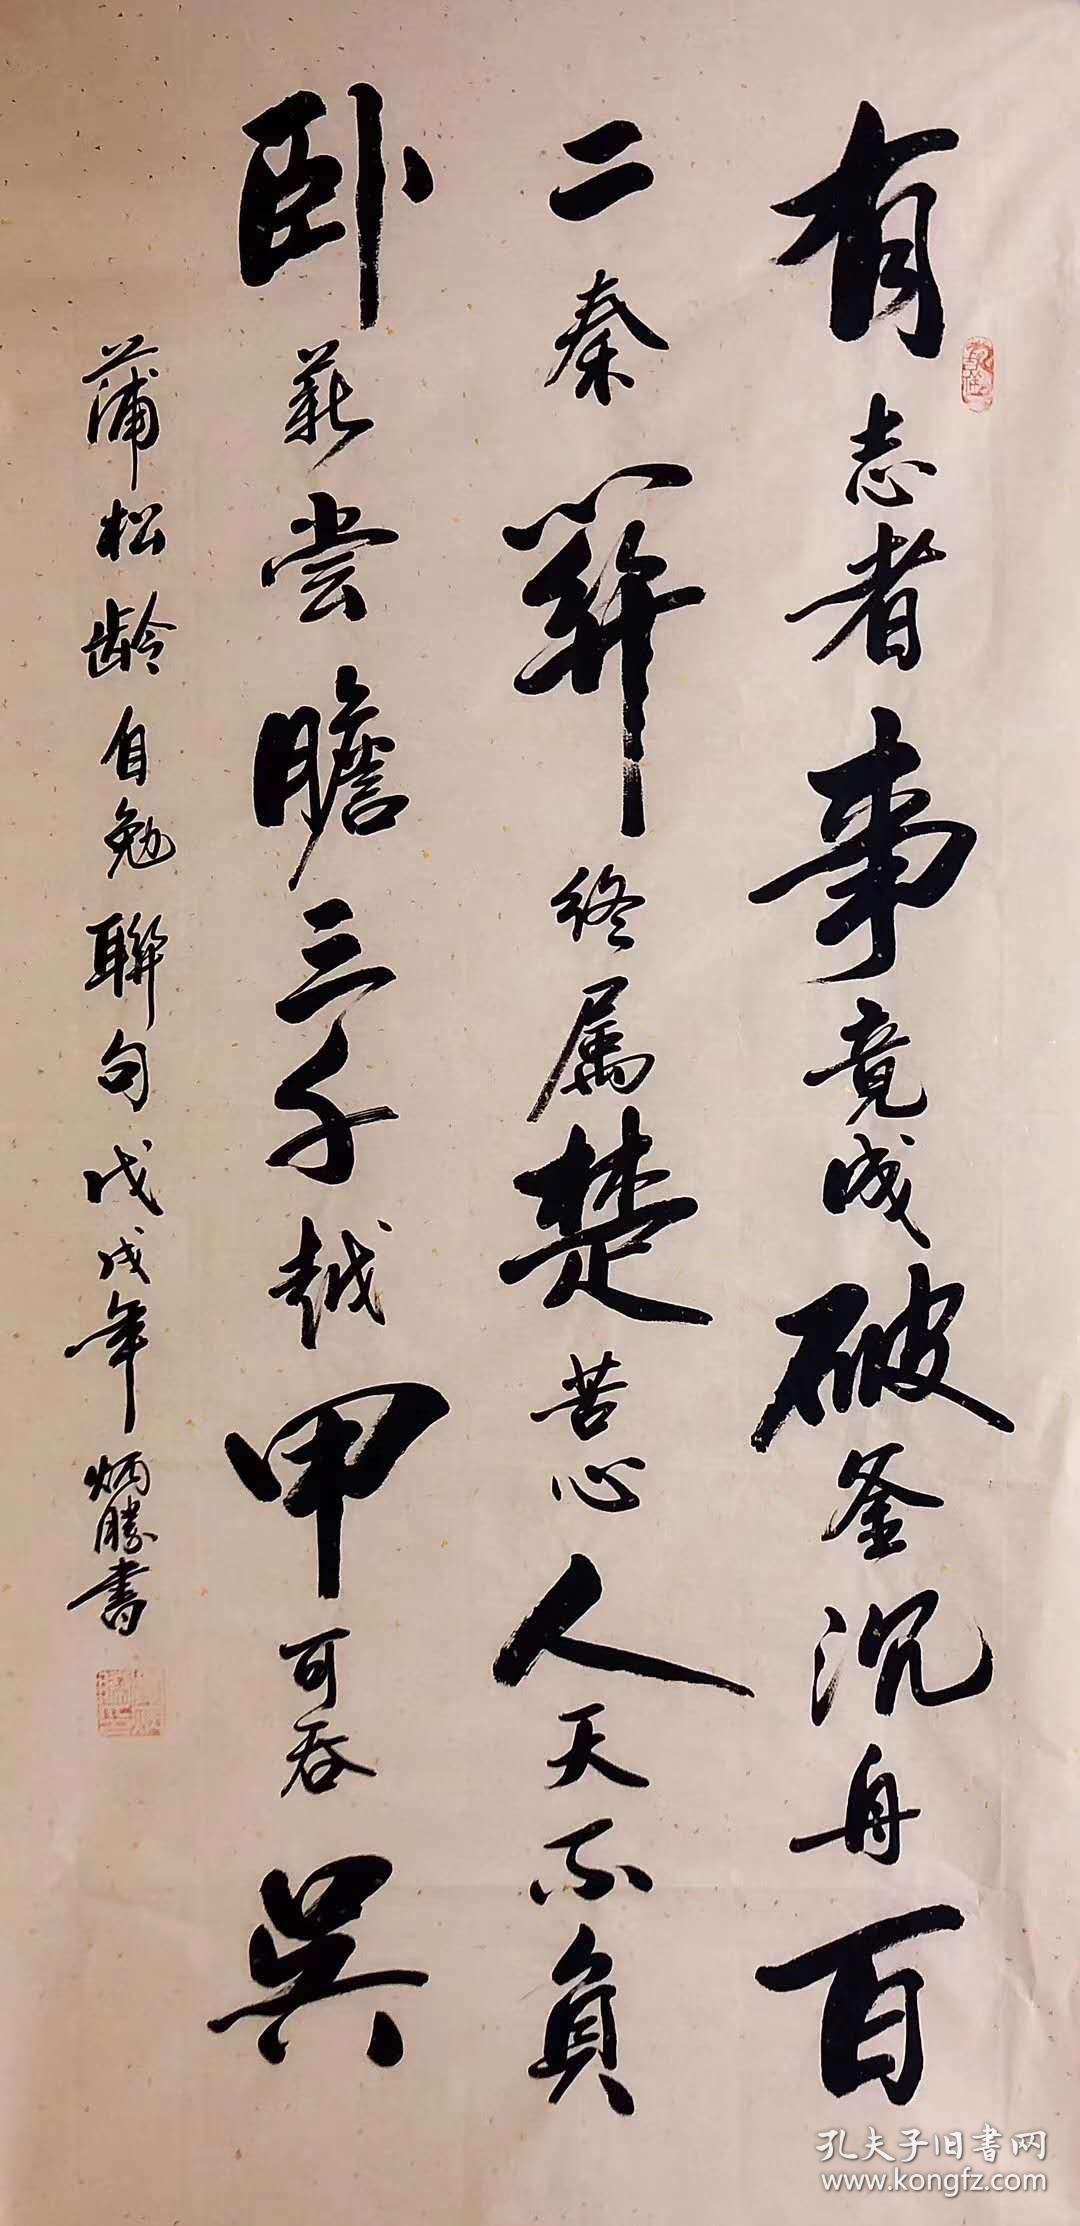 有志者事竟成破釜沉舟百
二秦關终属楚苦心人天不負
卧薪尝膽三千越甲可吞吳
蒲松龄自勉聯句戊戌年炳勝書
孔夫子旧書网
www.kongfz.com